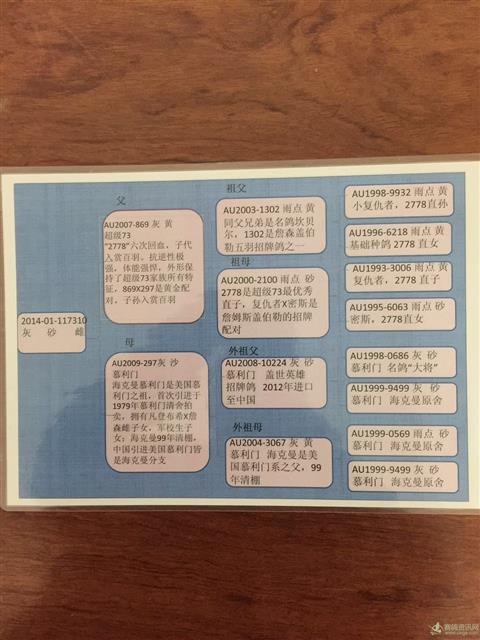 父
祖父
AU2007-869 灰 黄
超级73
“2778”六次回血，子代
入赏百羽。抗逆性极
强，体能强悍，外形保
持了超级73家族所有特
征，869X297是黄金配
对，子孙入赏百羽
AU2003-1302 雨点 黄
同父兄弟是名鸽坎贝
尔，1302是詹森盖伯
勒五羽招牌鸽之一
AU1998-9932 雨点 黄
小复仇者，2778直孙
AU1996-6218 雨点 黄
基础种鸽 2778 直女
祖母
AU2000-2100 雨点 砂
2778是超级73最优秀
直子，复仇者X密斯是
詹姆斯盖伯勒的招牌
配对
AU1993-3006 雨点 黄
复仇者，2778 直子
AU1995-6063 雨点 砂
密斯，2778直女
2014-01-117310
灰 砂 雌
母
AU2009-297灰 沙
慕利门
海克曼慕利门是美国慕
利门之祖，首次引进于
1979年慕利门清舍拍
卖，拥有凡登布希X詹
森雌子女，军校生子
女；海克曼99年清棚，
中国引进美国慕利门皆
是海克曼分支
外祖父
AU2008-10224 灰 砂
慕利门 盖世英雄
招牌鸽 2012年进口
至中国
AU1998-0686 灰 砂
慕利门 名鸽“大将”
AU1999-9499 灰 砂
慕利门 海克曼原舍
外祖母
AU2004-3067 灰 黄
慕利门 海克曼是美
国慕利门系之父，99
年清棚
AU1999-0569 雨点 砂
慕利门 海克曼原舍
AU1999-9499 灰 砂
慕利门 海克曼原舍
赛鸽资讯网